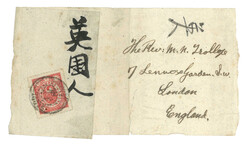 英國人
The Rev: M. N. Trollope
7 Lennox Gardens. S.W.
London
England.